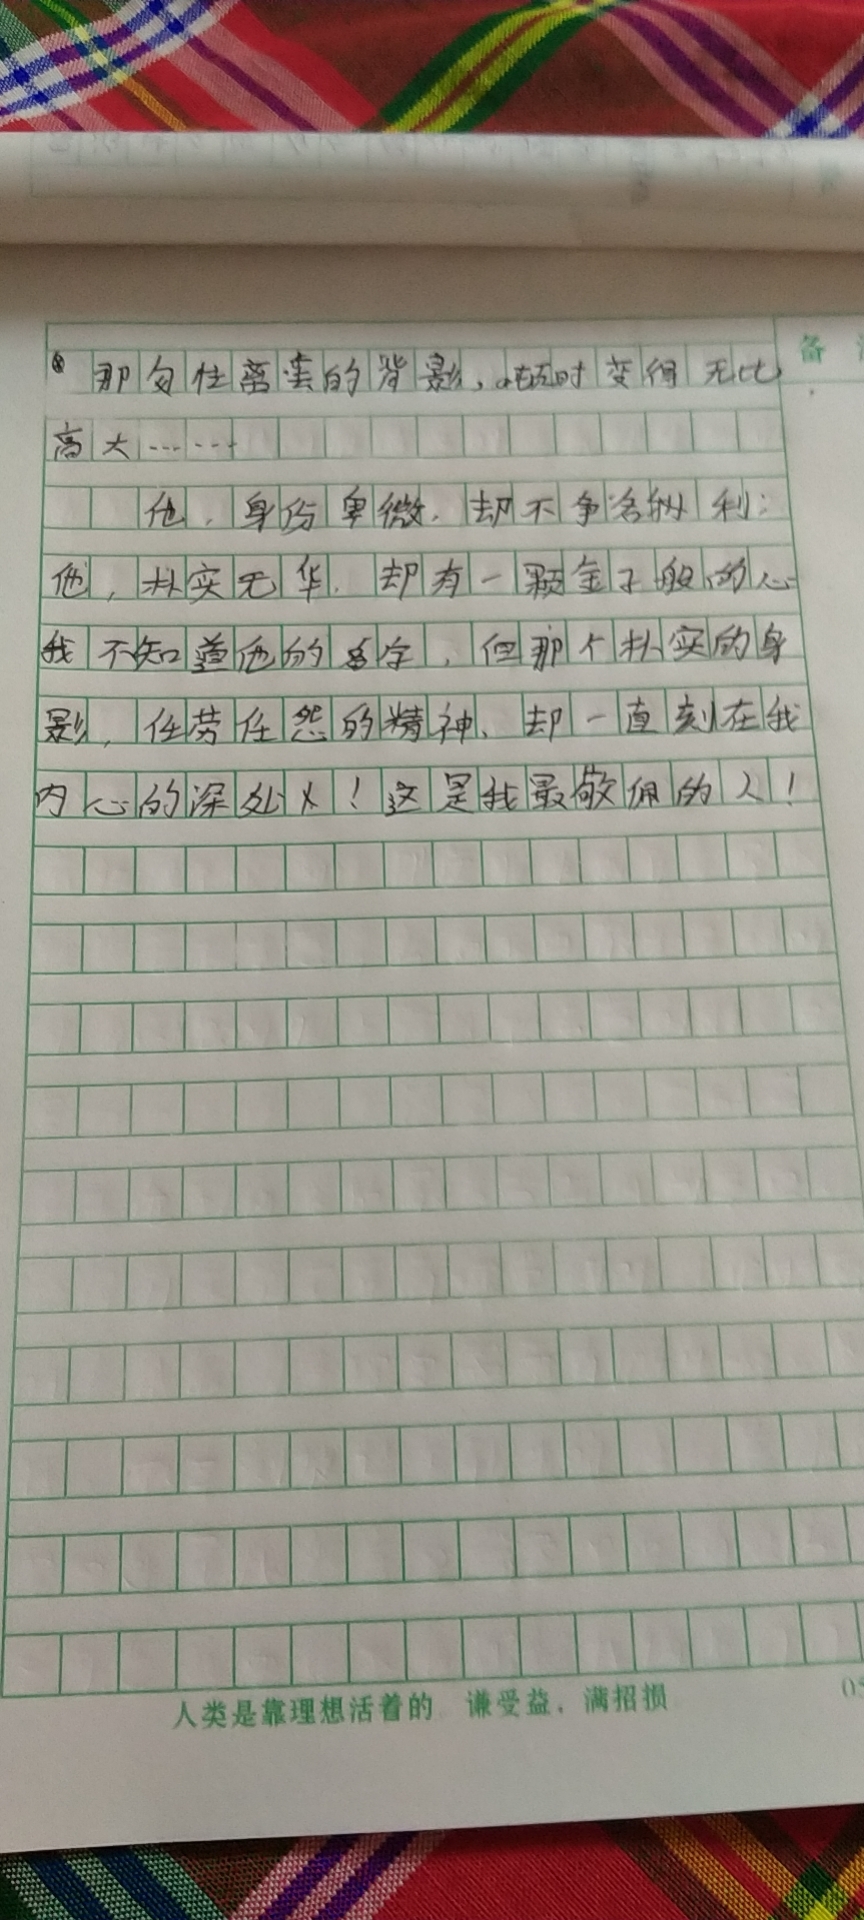 备
那匆忙离去的背影，顿时变得无比
高大……
他，身份卑微，却不争名纵利；
他，朴实无华，却有一颗金子般的心
我不知道他的名字，但那个朴实的身
影，任劳任怨的精神，却一直刻在我
内心的深处！这是我最敬佩的人！
人类是靠理想活着的 谦受益，满招损